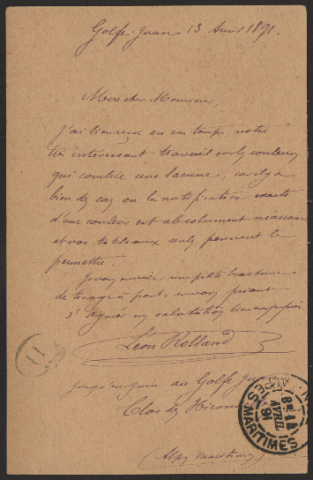 Golfe-Juan - 13 Avril 1891.
Mon cher Monsieur,
J'ai bien reçu en son temps votre
très intéressant travail sur les couleurs
qui comble une lacune, car il y a
bien des cas où la notification exacte
d'une couleur est absolument nécessaire
et vos tableaux seuls peuvent le
permettre
Je vous envoie une petite brochure
de tirage à part, en vous priant
d'agréer mes salutations
Léon Rolland
11
au Golfe Juan
Clos des
(Alpes maritimes)
AVRIL
91
ALPES MARITIMES